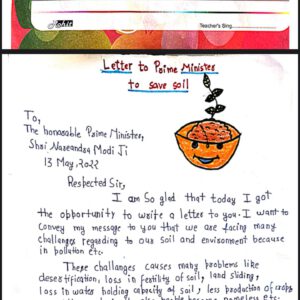 Teacher's Sing.
Letter to Prime Minister
to save soil
To,
The honorable Prime Minister,
Shri Narendra Modi Ji
13 May, 2022
Respected Sir,
I am so glad that today I got
the opportunity to write a letter to you. I want to
convey my message to you that we are facing many
challanges regarding to our soil and environment because
in pollution etc.
These challanges causes many problems like
desertification, loss in fertility of soil, land sliding,
loss in water holding capacity of soil, less production of crops